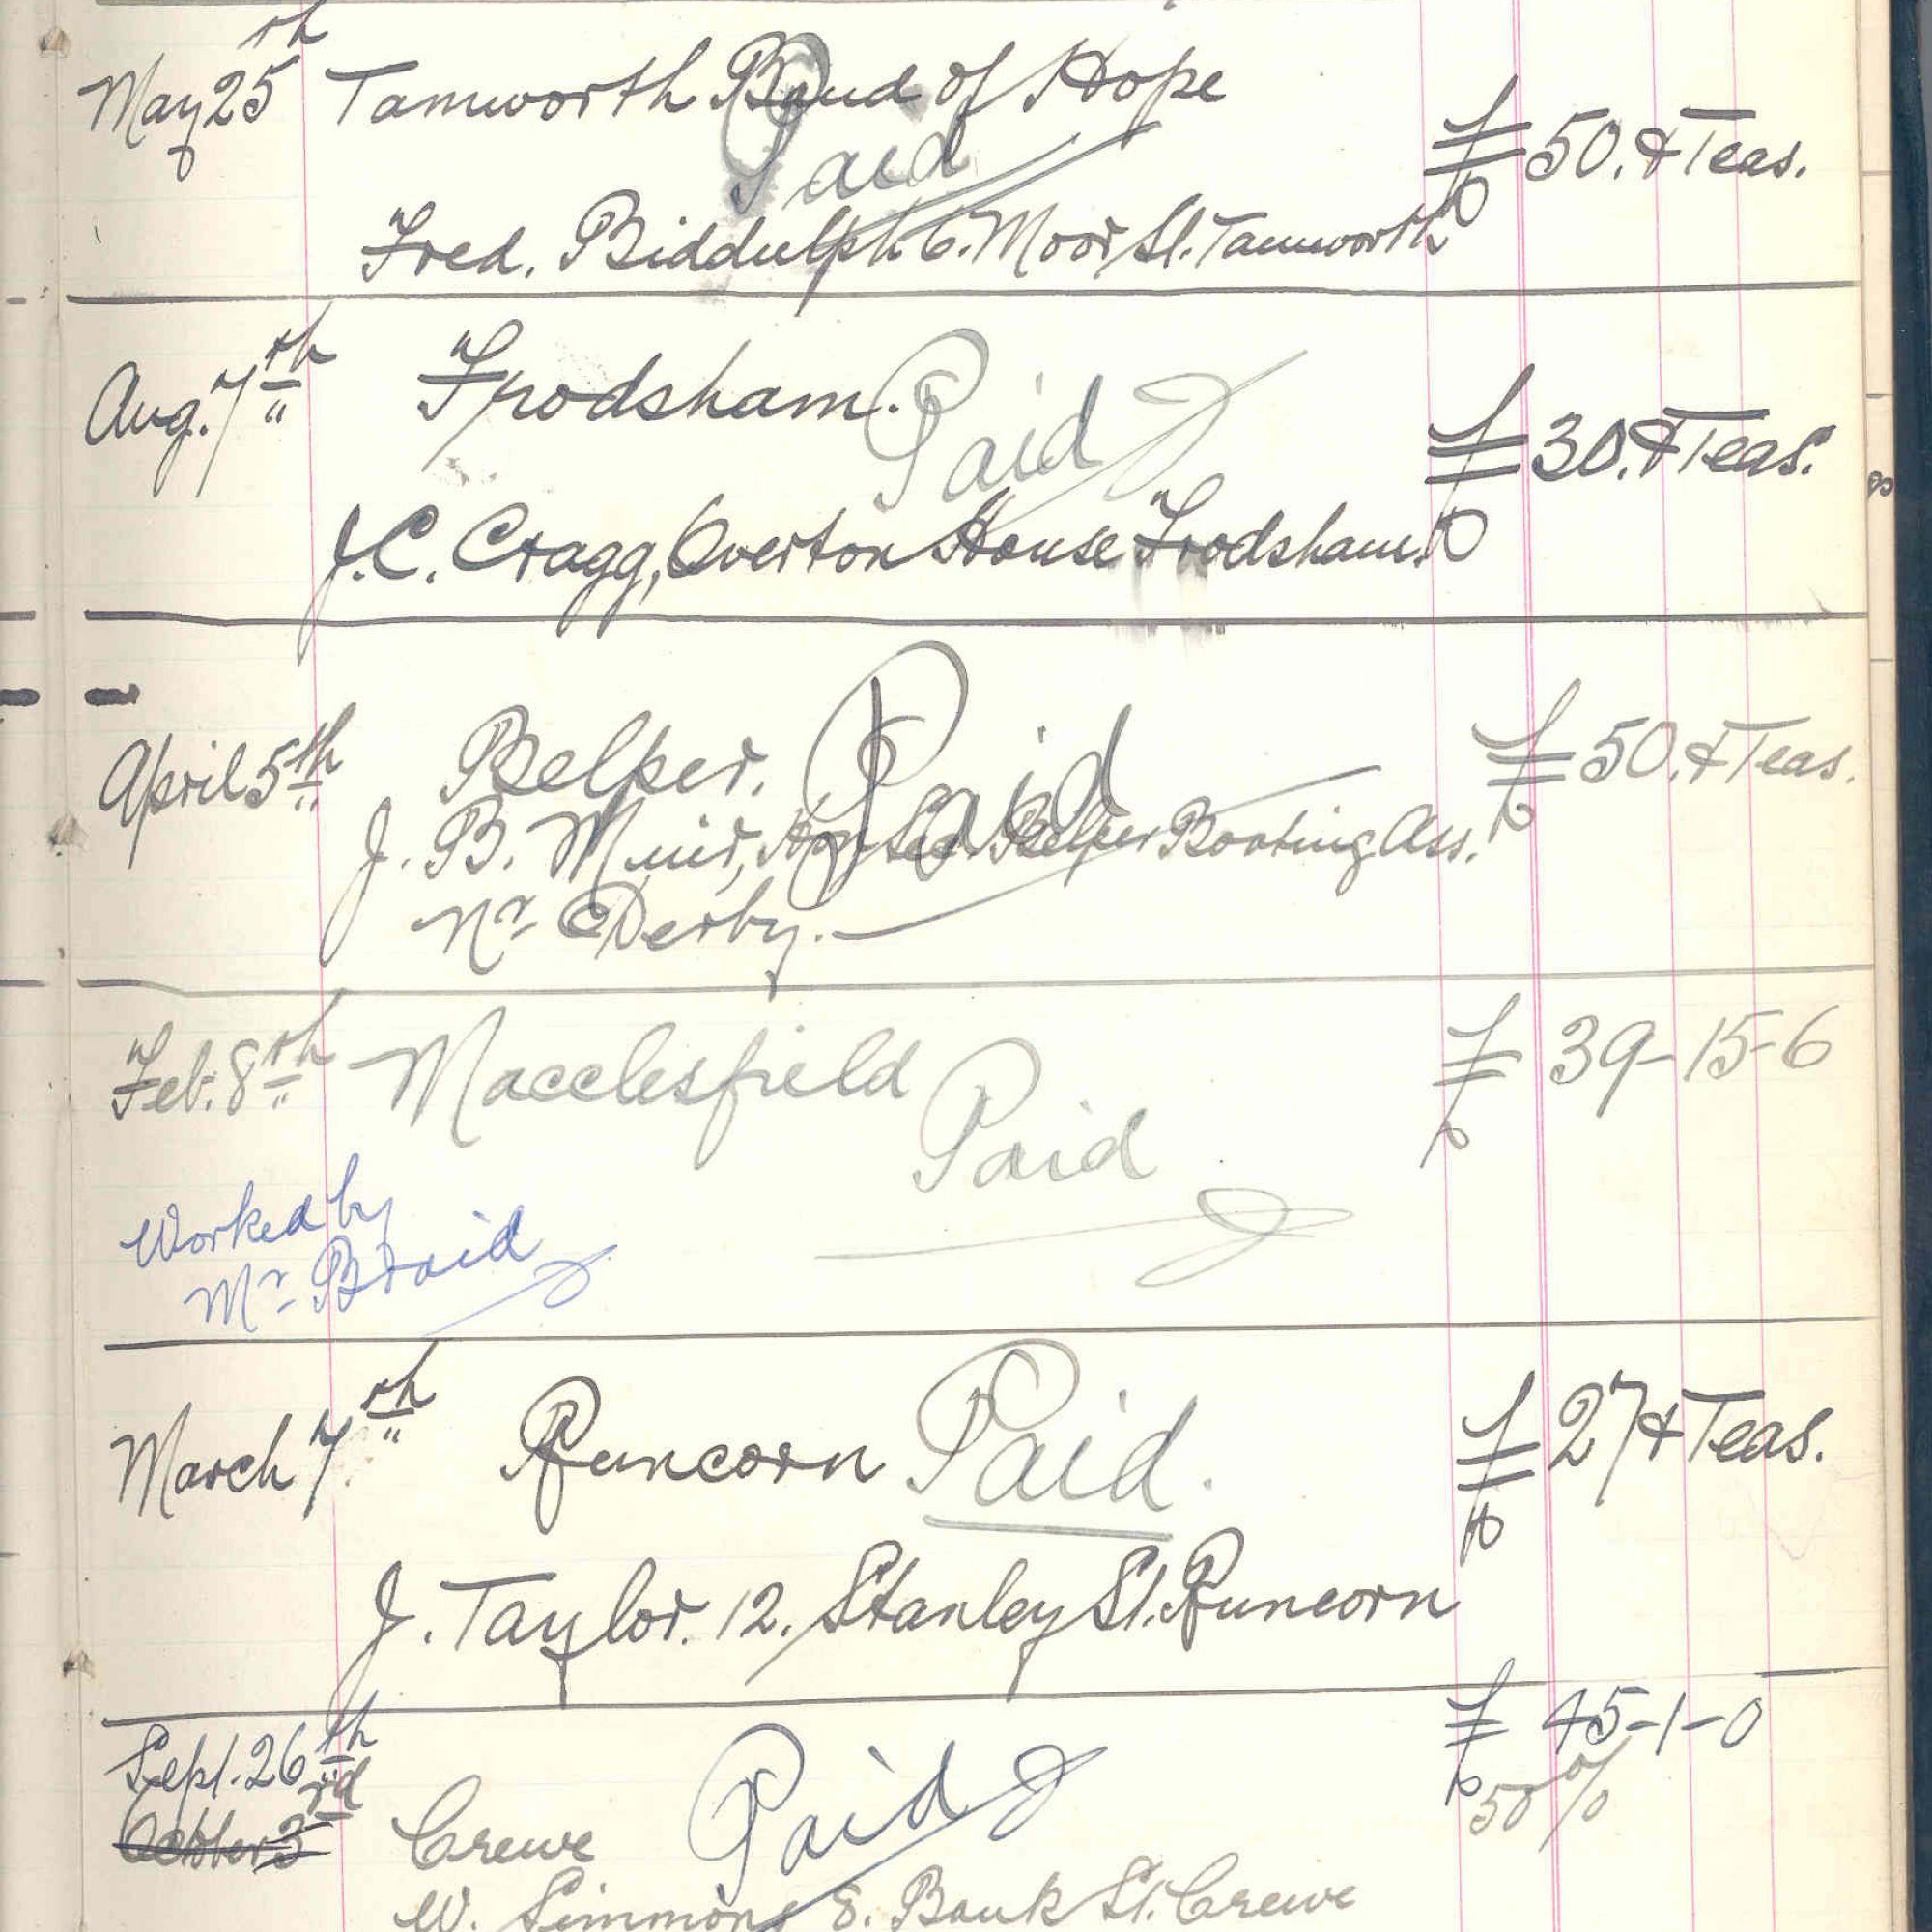 May 25th Tamworth Band of Hope
Paid
£50. & Teas.
Fred. Biddulph 6. Moor St. Tamworth
Aug. 7th Frodsham. Paid
£30. & Teas.
J. C. Cragg, Overton House Frodsham.
April 5th Belper. Paid
£50. & Teas.
J. B. Muir, Hon Sec. Belper Boating Ass.
Nr Derby.
Feb. 8th Macclesfield £ 39-15-6
Paid
Worked by
Mr Braid
March 7th Runcorn Paid.
£27 & Teas.
J. Taylor. 12. Stanley St. Runcorn
Sept. 26th £ 45-1-0
50%
October 3rd Crewe Paid
W. Simmons E. Bank St. Crewe